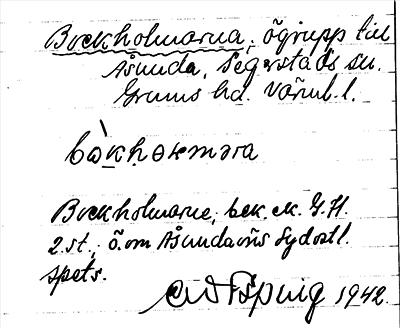 Bockholmarna, ögrupp till
Åsunda, Segerstads sn.
Grums hd. Värml. l.
Bockholmarne, bek. ek. G.H.
2 st., ö. om Åsundaöns sydostl.
spets.
1942.